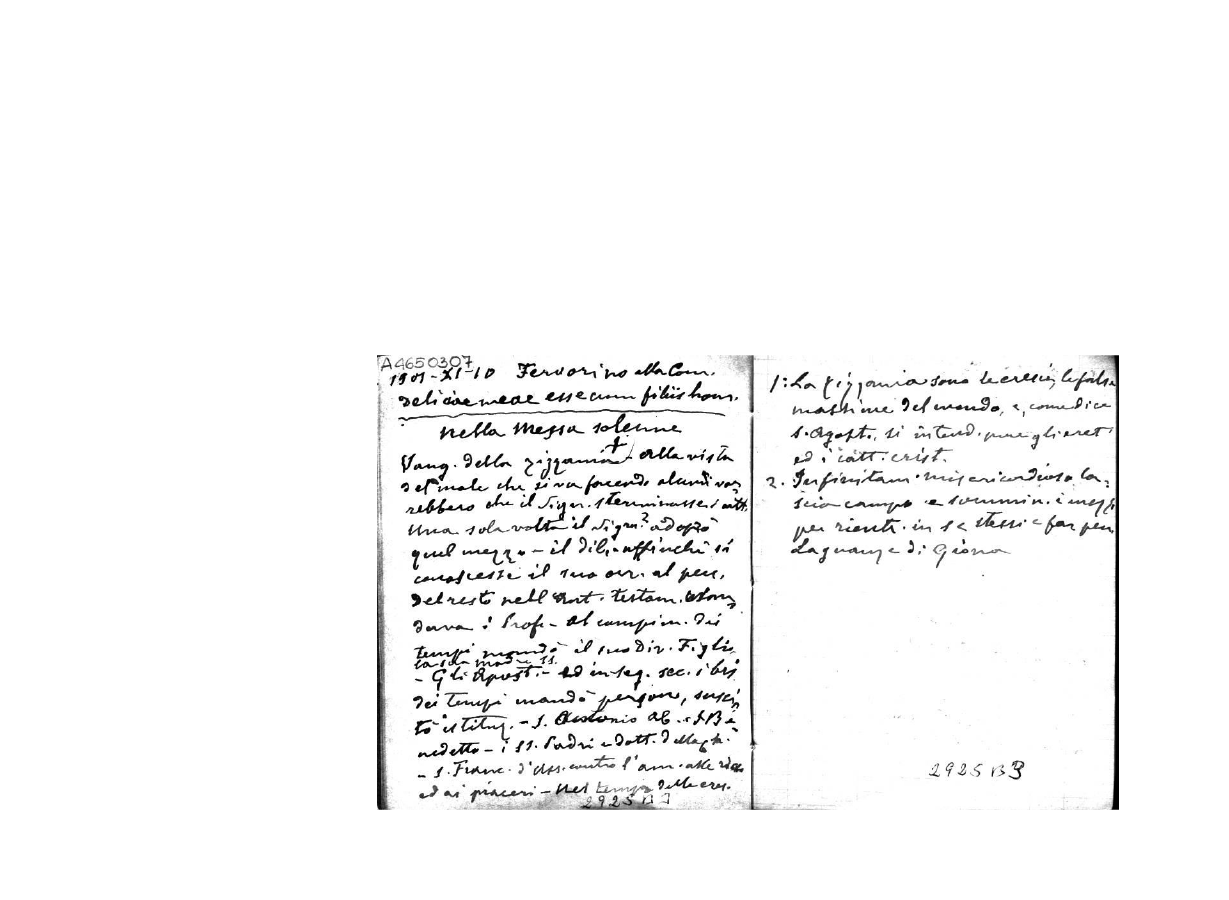 A4650307
1901-XI-10 Fervorino alla Com.
deliciae meae esse cum filiis hom.
nella Messa solenne
Vang. della zizzania - Alla vista
del male che si va facendo alcuni vor
rebbero che il Sign. sterminasse i catt.
Una sola volta il Sign. adoprò
quel mezzo - il dil. affinché si
conoscesse il suo orr. al pecc.
Del resto nell'Ant. testam. Man
dava i Prof. - Al compim. dei
tempi mandò il suo Div. Figlio
la sua Madre SS.
- Gli Apost. - ed in seg. sec. i bis
dei tempi mandò persone, susci
tò istituz. - S. Antonio Ab. - S. Be
nedetto - i SS. Padri e dott. della Ch.
- S. Franc. d'Ass. contro l'am. alle ricc.
ed ai piaceri - Nel tempo delle eres.
2925 B3
1: La zizzania sono le eresie, le false
massime del mondo, e, come dice
S. Agost., si intend. pure gli eret
ed i catt. crist.
2. Infinitam. misericordioso la-
scia campo e sommin. i mezzi
per rientr. in se stessi e far pen.
La guanze di Giona
2925 B3